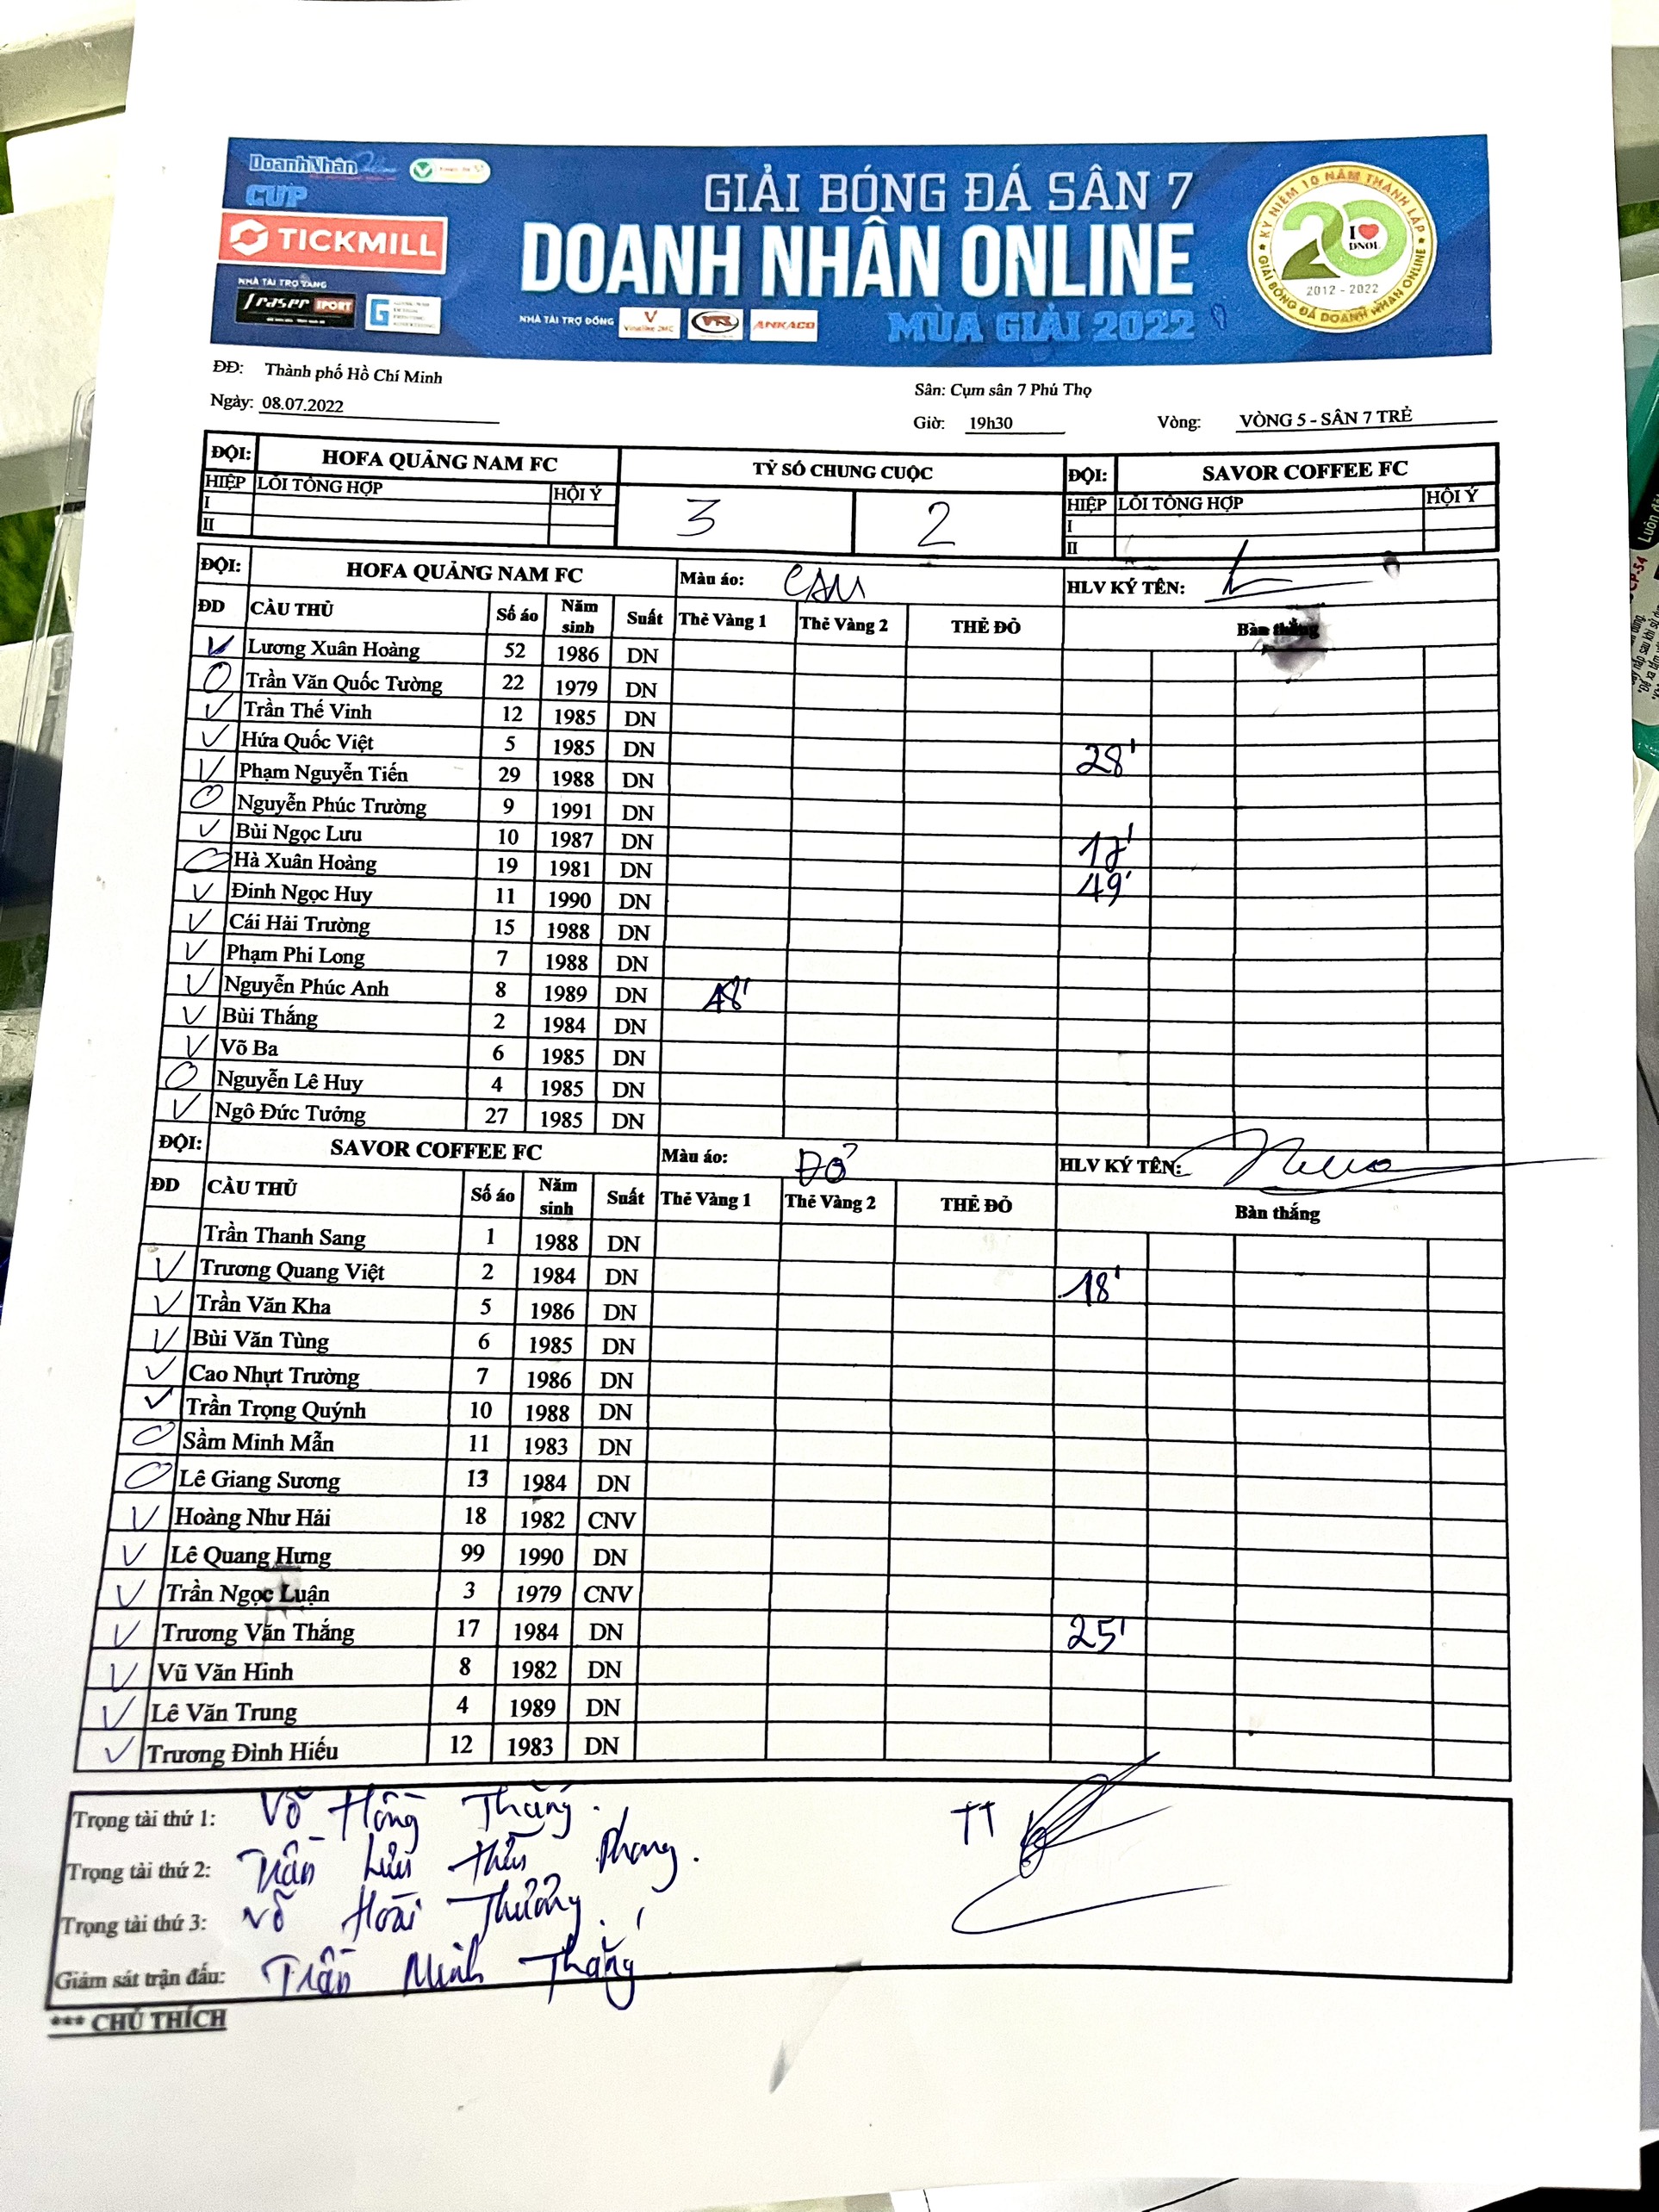 DoanhNhân
CUP
GIẢI BÓNG ĐÁ SÂN 7
DOANH NHÂN ONLINE
MÙA GIẢI 2022
TICKMILL
NHÀ TÀI TRỢ VÀNG
fraser SPORT
NHÀ TÀI TRỢ ĐỒNG
VTR
ANKACO
KỶ NIỆM 10 NĂM THÀNH LẬP
I ❤ DNOL
2012 - 2022
GIẢI BÓNG ĐÁ DOANH NHÂN ONLINE
ĐĐ: Thành phố Hồ Chí Minh Sân: Cụm sân 7 Phú Thọ
Ngày: 08.07.2022 Giờ: 19h30 Vòng: VÒNG 5 - SÂN 7 TRẺ
ĐỘI: HOFA QUẢNG NAM FC TỶ SỐ CHUNG CUỘC ĐỘI: SAVOR COFFEE FC
HIỆP LỖI TỔNG HỢP HỘI Ý 3 2 HIỆP LỖI TỔNG HỢP HỘI Ý
I I
II II
ĐỘI: HOFA QUẢNG NAM FC Màu áo: CAM HLV KÝ TÊN:
ĐD CẦU THỦ Số áo Năm sinh Suất Thẻ Vàng 1 Thẻ Vàng 2 THẺ ĐỎ Bàn thắng
Lương Xuân Hoàng 52 1986 DN
Trần Văn Quốc Tường 22 1979 DN
Trần Thế Vinh 12 1985 DN
Hứa Quốc Việt 5 1985 DN 28'
Phạm Nguyễn Tiến 29 1988 DN
Nguyễn Phúc Trường 9 1991 DN
Bùi Ngọc Lưu 10 1987 DN 17'
Hà Xuân Hoàng 19 1981 DN 49'
Đinh Ngọc Huy 11 1990 DN
Cái Hải Trường 15 1988 DN
Phạm Phi Long 7 1988 DN
Nguyễn Phúc Anh 8 1989 DN 48'
Bùi Thắng 2 1984 DN
Võ Ba 6 1985 DN
Nguyễn Lê Huy 4 1985 DN
Ngô Đức Tưởng 27 1985 DN
ĐỘI: SAVOR COFFEE FC Màu áo: ĐỎ HLV KÝ TÊN:
ĐD CẦU THỦ Số áo Năm sinh Suất Thẻ Vàng 1 Thẻ Vàng 2 THẺ ĐỎ Bàn thắng
Trần Thanh Sang 1 1988 DN
Trương Quang Việt 2 1984 DN 18'
Trần Văn Kha 5 1986 DN
Bùi Văn Tùng 6 1985 DN
Cao Nhựt Trường 7 1986 DN
Trần Trọng Quýnh 10 1988 DN
Sầm Minh Mẫn 11 1983 DN
Lê Giang Sương 13 1984 DN
Hoàng Như Hải 18 1982 CNV
Lê Quang Hưng 99 1990 DN
Trần Ngọc Luận 3 1979 CNV
Trương Văn Thắng 17 1984 DN 25'
Vũ Văn Hinh 8 1982 DN
Lê Văn Trung 4 1989 DN
Trương Đình Hiếu 12 1983 DN
Trọng tài thứ 1: Võ Hồng Thắng. TT
Trọng tài thứ 2: Trần Lưu Phong.
Trọng tài thứ 3: Võ Hoài Thưởng.
Giám sát trận đấu: Trần Minh Thắng
*** CHÚ THÍCH